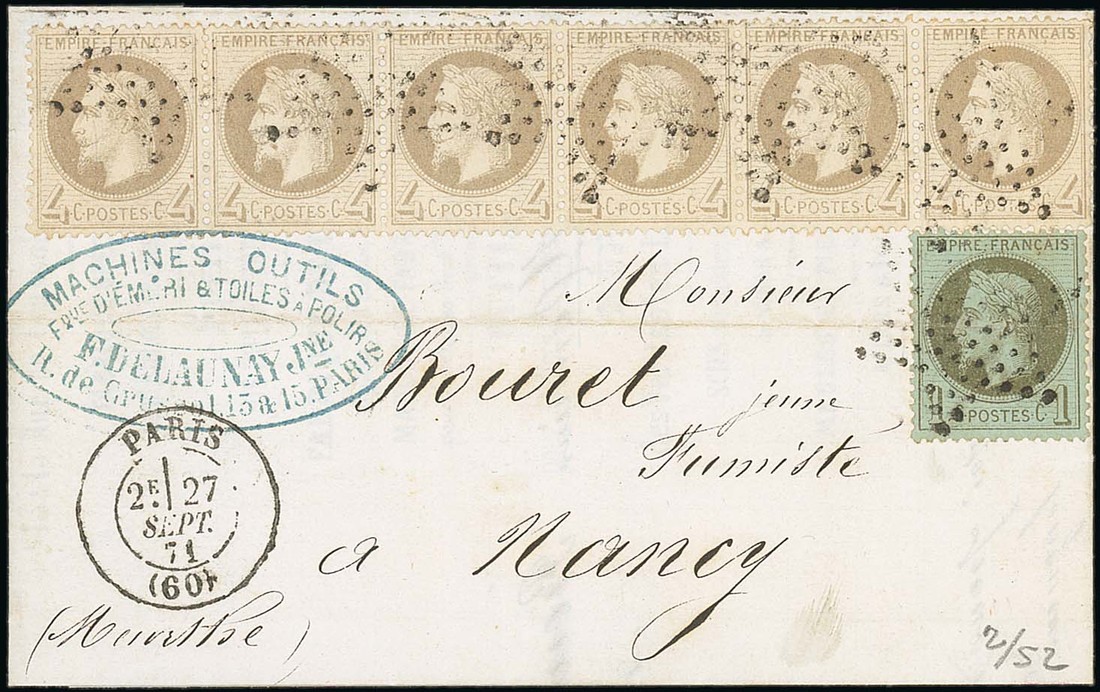 EMPIRE FRANÇAIS EMPIRE FRANÇAIS EMPIRE FRANÇAIS EMPIRE FRANÇAIS EMPIRE FRANÇAIS EMPIRE FRANÇAIS
4 C. POSTES C. 4 4 C. POSTES C. 4 4 C. POSTES C. 4 4 C. POSTES C. 4 4 C. POSTES C. 4 4 C. POSTES C. 4
EMPIRE FRANÇAIS
1 C. POSTES C. 1
MACHINES OUTILS
Fque D'ÉMERI & TOILES A POLIR
F. DELAUNAY Jne
R. de 13 & 15. PARIS
Monsieur
Bouret jeune
Fumiste
a Nancy
(Meurthe)
PARIS
2E 27
SEPT.
71
(60)
2/52